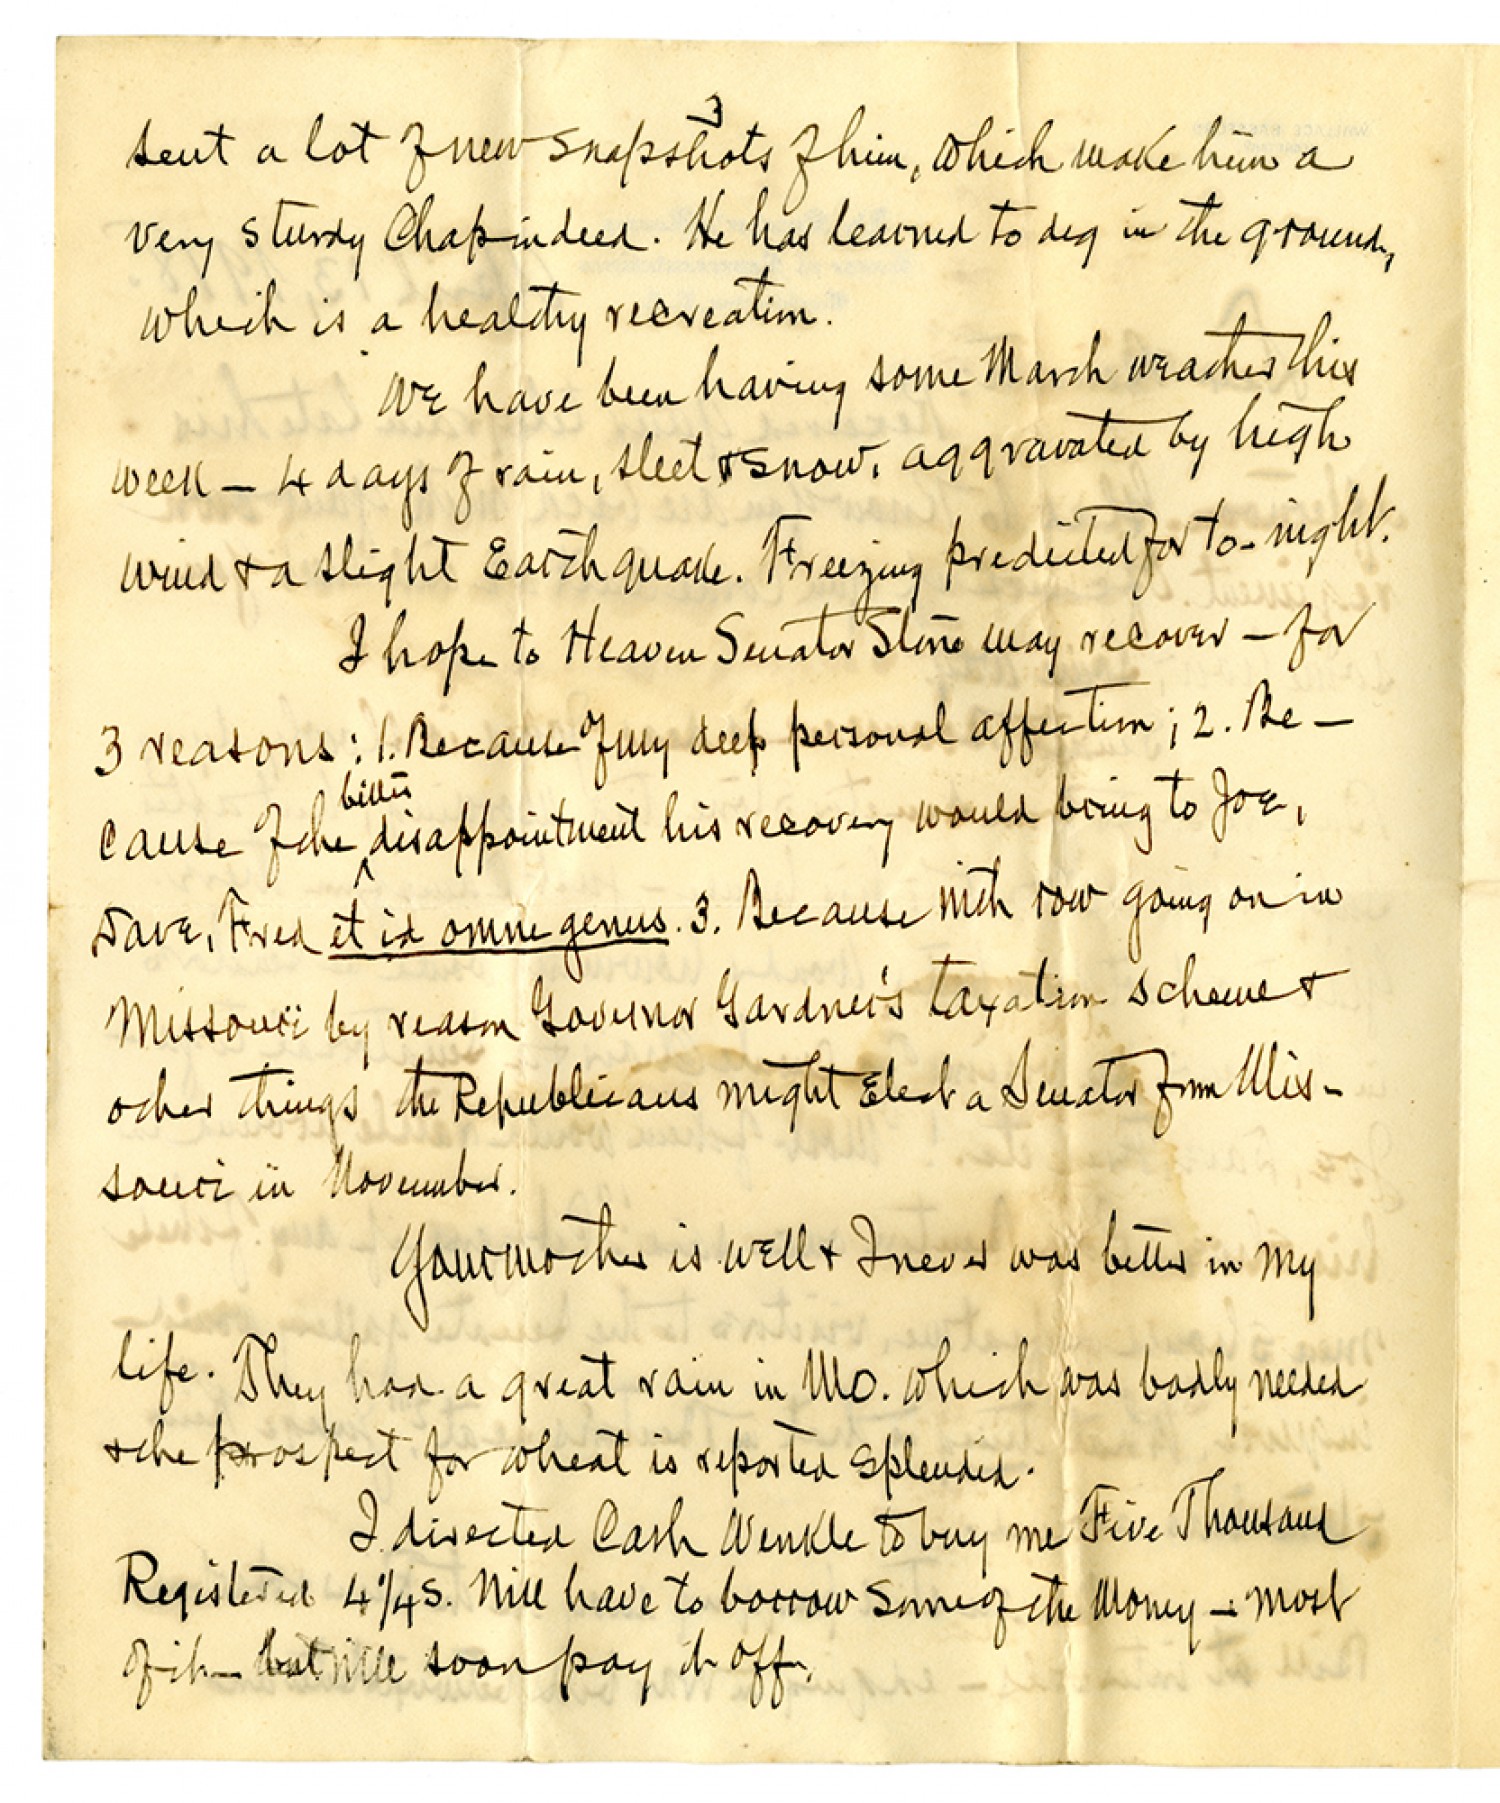 3
sent a lot of new snapshots of him, which make him a
very sturdy Chap indeed. He has learned to dig in the ground,
which is a healthy recreation.
We have been having some March weather this
week – 4 days of rain, sleet & snow, aggravated by high
wind & a slight Earthquake. Freezing predicted for to-night.
I hope to Heaven Senator Stone may recover – for
3 reasons: 1. Because of my deep personal affection; 2. Be–
cause of the bitter disappointment his recovery would bring to Joe,
Dave, Fred et id omne genus. 3. Because with row going on in
Missouri by reason Governor Gardner's taxation scheme &
other things the Republicans might Elect a Senator from Mis–
souri in November.
Your mother is well & I never was better in my
life. They had a great rain in MO. which was badly needed
& the prospect for wheat is reported splendid.
I directed Cash Wenkle to buy me Five Thousand
Registered 4 1/4s. Will have to borrow some of the Money – most
of it – but will soon pay it off.